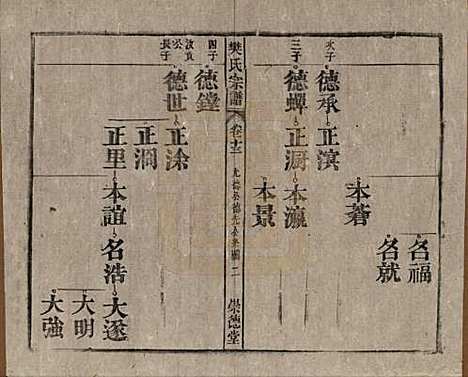 名福
名就
本蒼
次子
德承 正濱
三子
德蟬 正澍 本瀛
本景
樊氏宗譜
卷十三
二
崇德堂
四子
德鏜
汝貞公長子
德世 正涂
正澗
正里 本誼 名浩 大遂
大明
大強